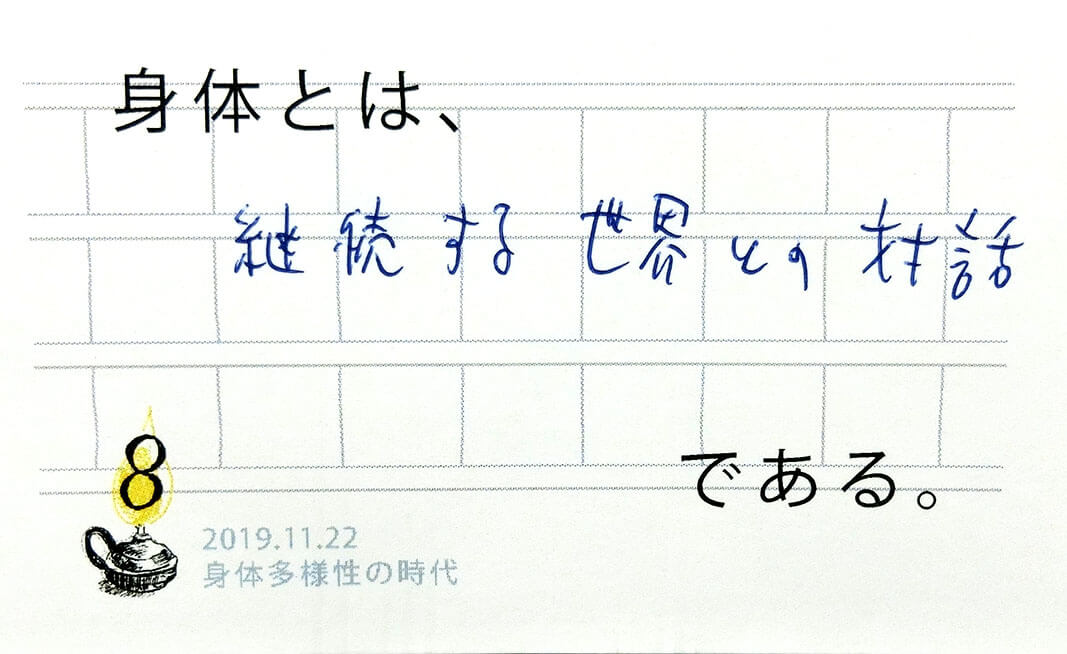 身体とは、
継続する世界との対話
である。
8
2019.11.22
身体多様性の時代